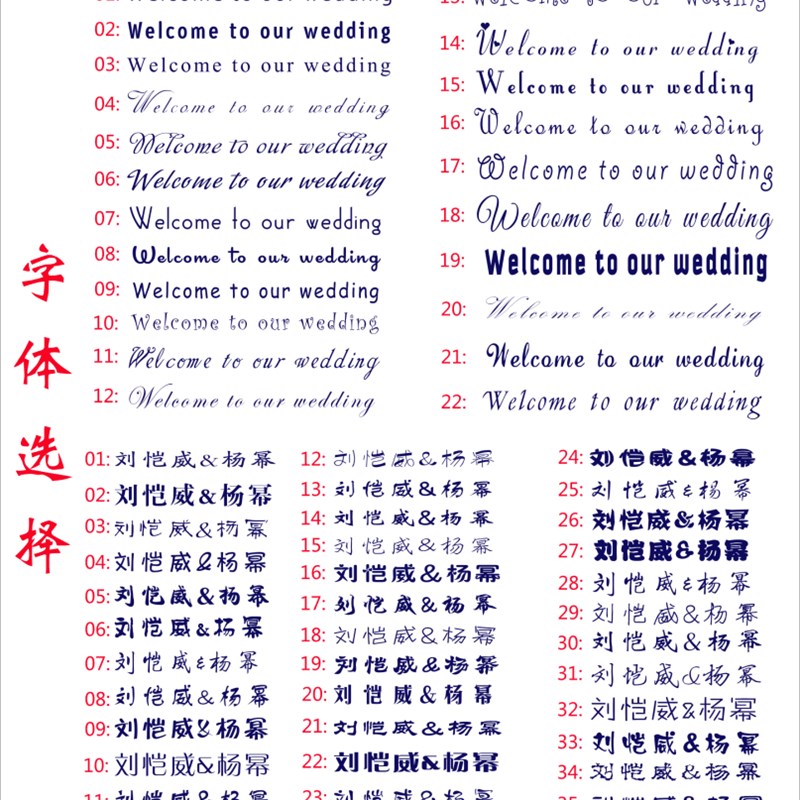 Welcome to our wedding
02: Welcome to our wedding
03: Welcome to our wedding
04: Welcome to our wedding
05: Welcome to our wedding
06: Welcome to our wedding
07: Welcome to our wedding
08: Welcome to our wedding
09: Welcome to our wedding
10: Welcome to our wedding
11: Welcome to our wedding
12: Welcome to our wedding
13: Welcome to our wedding
14: Welcome to our wedding
15: Welcome to our wedding
16: Welcome to our wedding
17: Welcome to our wedding
18: Welcome to our wedding
19: Welcome to our wedding
20: Welcome to our wedding
21: Welcome to our wedding
22: Welcome to our wedding
字体选择
01: 刘恺威&杨幂
02: 刘恺威&杨幂
03: 刘恺威&杨幂
04: 刘恺威&杨幂
05: 刘恺威&杨幂
06: 刘恺威&杨幂
07: 刘恺威&杨幂
08: 刘恺威&杨幂
09: 刘恺威&杨幂
10: 刘恺威&杨幂
11: 刘恺威&杨幂
12: 刘恺威&杨幂
13: 刘恺威&杨幂
14: 刘恺威&杨幂
15: 刘恺威&杨幂
16: 刘恺威&杨幂
17: 刘恺威&杨幂
18: 刘恺威&杨幂
19: 刘恺威&杨幂
20: 刘恺威&杨幂
21: 刘恺威&杨幂
22: 刘恺威&杨幂
23: 刘恺威&杨幂
24: 刘恺威&杨幂
25: 刘恺威&杨幂
26: 刘恺威&杨幂
27: 刘恺威&杨幂
28: 刘恺威&杨幂
29: 刘恺威&杨幂
30: 刘恺威&杨幂
31: 刘恺威&杨幂
32: 刘恺威&杨幂
33: 刘恺威&杨幂
34: 刘恺威&杨幂
35: 刘恺威&杨幂